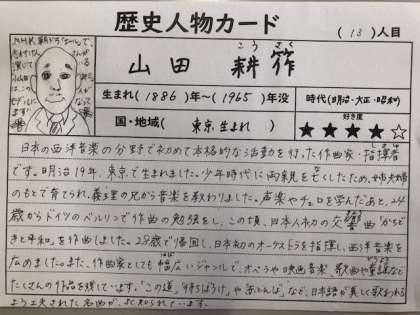 歴史人物カード
(13)人目
NHK朝ドラ「エール」で、
山田耕筰
こうさく
生まれ(1886)年~(1965)年没
時代(明治・大正・昭和)
国・地域(東京生まれ)
好き度
★★★★☆
日本の西洋音楽の分野で初めて本格的な活動を行った作曲家・指揮者
です。明治19年、東京で生まれました。少年時代に両親を亡くしたため、姉夫婦
のもとで育てられ、義理の兄から音楽を教わりました。声楽やチェロを学んだあと、24
歳からドイツのベルリンで作曲の勉強をし、この頃、日本人初の交響曲「かちど
きと平和」を作曲しました。28歳で帰国し、日本初のオーケストラを指揮し、西洋音楽を
広めました。また、作曲家としても幅広いジャンルで、オペラや映画音楽、歌曲や童謡など
たくさんの作品を残しています。「この道」「待ちぼうけ」や「赤とんぼ」など、日本語が美しく歌われる
よう工夫された名曲が、よく知られています。